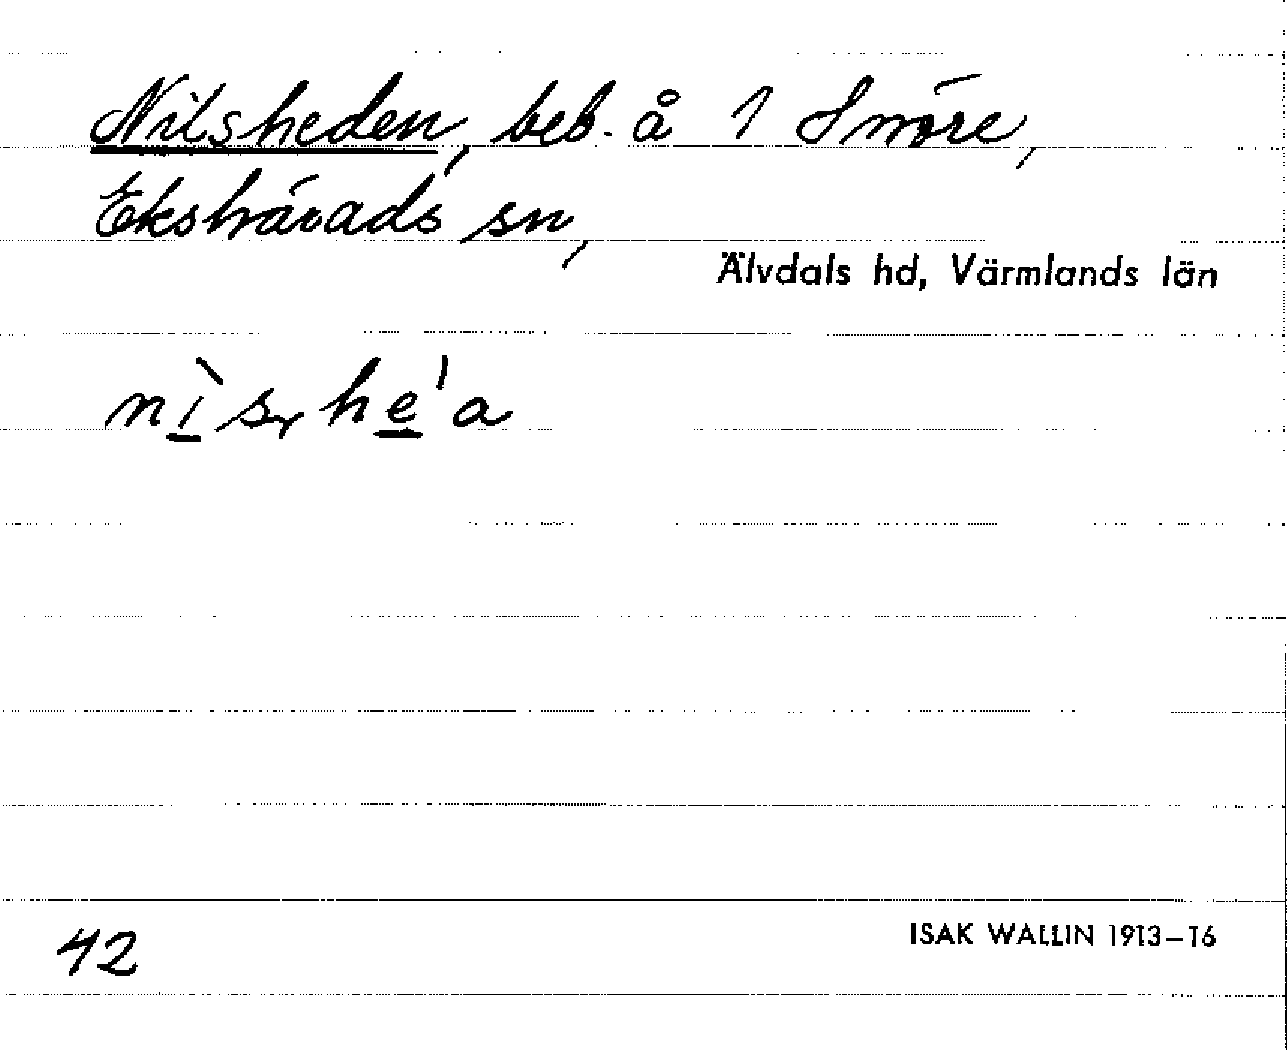 Nilsheden, beb. å 1 Smöre,
Ekshärads sn,
Älvdals hd, Värmlands län
nìs,he'a
42
ISAK WALLIN 1913–16